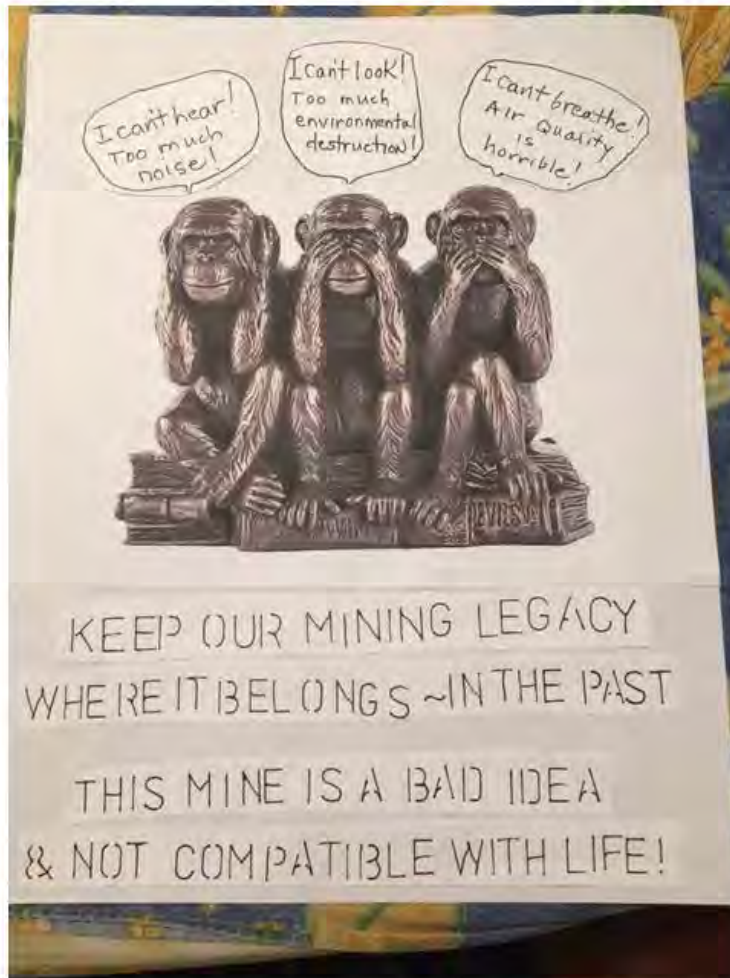 I can't hear!
Too much
noise!
I can't look!
Too much
environmental
destruction!
I can't breathe!
Air Quality
is
horrible!
KEEP OUR MINING LEGACY
WHERE IT BELONGS ~IN THE PAST
THIS MINE IS A BAD IDEA
& NOT COMPATIBLE WITH LIFE!